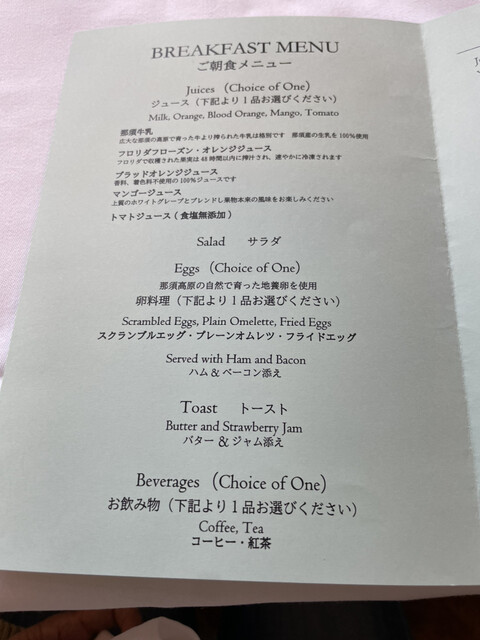 BREAKFAST MENU
ご朝食メニュー
Juices （Choice of One）
ジュース（下記より1品お選びください）
Milk, Orange, Blood Orange, Mango, Tomato
那須牛乳
広大な那須の高原で育った牛より搾られた牛乳は格別です 那須産の生乳を100％使用
フロリダフローズン・オレンジジュース
フロリダで収穫された果実は48時間以内に搾汁され、速やかに冷凍されます
ブラッドオレンジジュース
香料、着色料不使用の100％ジュースです
マンゴージュース
上質のホワイトグレープとブレンドし果物本来の風味をお楽しみください
トマトジュース（食塩無添加）
Salad サラダ
Eggs （Choice of One）
那須高原の自然で育った地養卵を使用
卵料理（下記より1品お選びください）
Scrambled Eggs, Plain Omelette, Fried Eggs
スクランブルエッグ・プレーンオムレツ・フライドエッグ
Served with Ham and Bacon
ハム＆ベーコン添え
Toast トースト
Butter and Strawberry Jam
バター ＆ジャム添え
Beverages （Choice of One）
お飲み物（下記より1品お選びください）
Coffee, Tea
コーヒー・紅茶